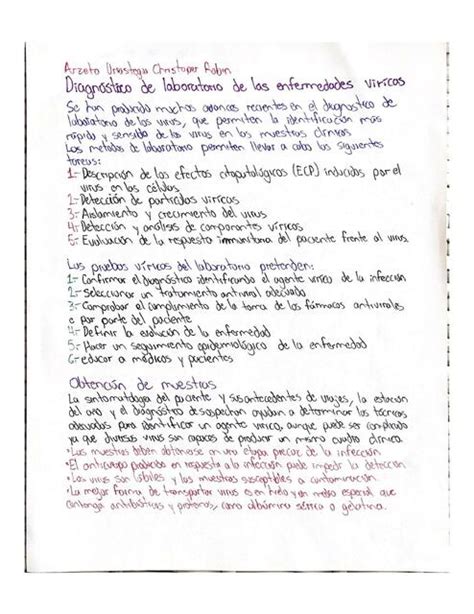 Arzeta Urióstegui Christoper Robin
Diagnóstico de laboratorio de las enfermedades víricas
Se han producido muchos avances recientes en el diagnostico de
laboratorio de los virus, que permiten la identificación más
rápida y sensible de los virus en las muestras clínicas
Los metodos de laboratorio permiten llevar a cabo las siguientes
tareas:
1.- Descripción de los efectos citopatológicos (ECP) inducidos por el
virus en las células
2.- Detección de partículas víricas
3.- Aislamiento y crecimiento del virus
4.- Detección y análisis de componentes víricos
5.- Evaluación de la respuesta inmunitaria del paciente frente al virus.
Las pruebas víricas del laboratorio pretenden:
1.- Confirmar el diagnóstico identificando el agente vírico de la infección
2.- Seleccionar un tratamiento antiviral adecuado
3.- Comprobar el cumplimiento de la toma de los fármacos antivirales
por parte del paciente
4.- Definir la evolución de la enfermedad
5.- Hacer un seguimiento epidemiológico de la enfermedad
6.- educar a médicos y pacientes
Obtención de muestras
La sintomatología del paciente y sus antecedentes de viajes, la estación
del año y el diagnóstico de sospecha ayudan a determinar las técnicas
adecuadas para identificar un agente vírico, aunque puede ser complicado
ya que diversos virus son capaces de producir un mismo cuadro clínico.
•Las muestras deben obtenerse en una etapa precoz de la infección
•El anticuerpo producido en respuesta a la infección puede impedir la detección
•Los virus son lábiles y las muestras susceptibles a contaminación.
•La mejor forma de transportar virus es en hielo y en medio especial que
contenga antibióticos y proteínas, como albúmina sérica o gelatina.